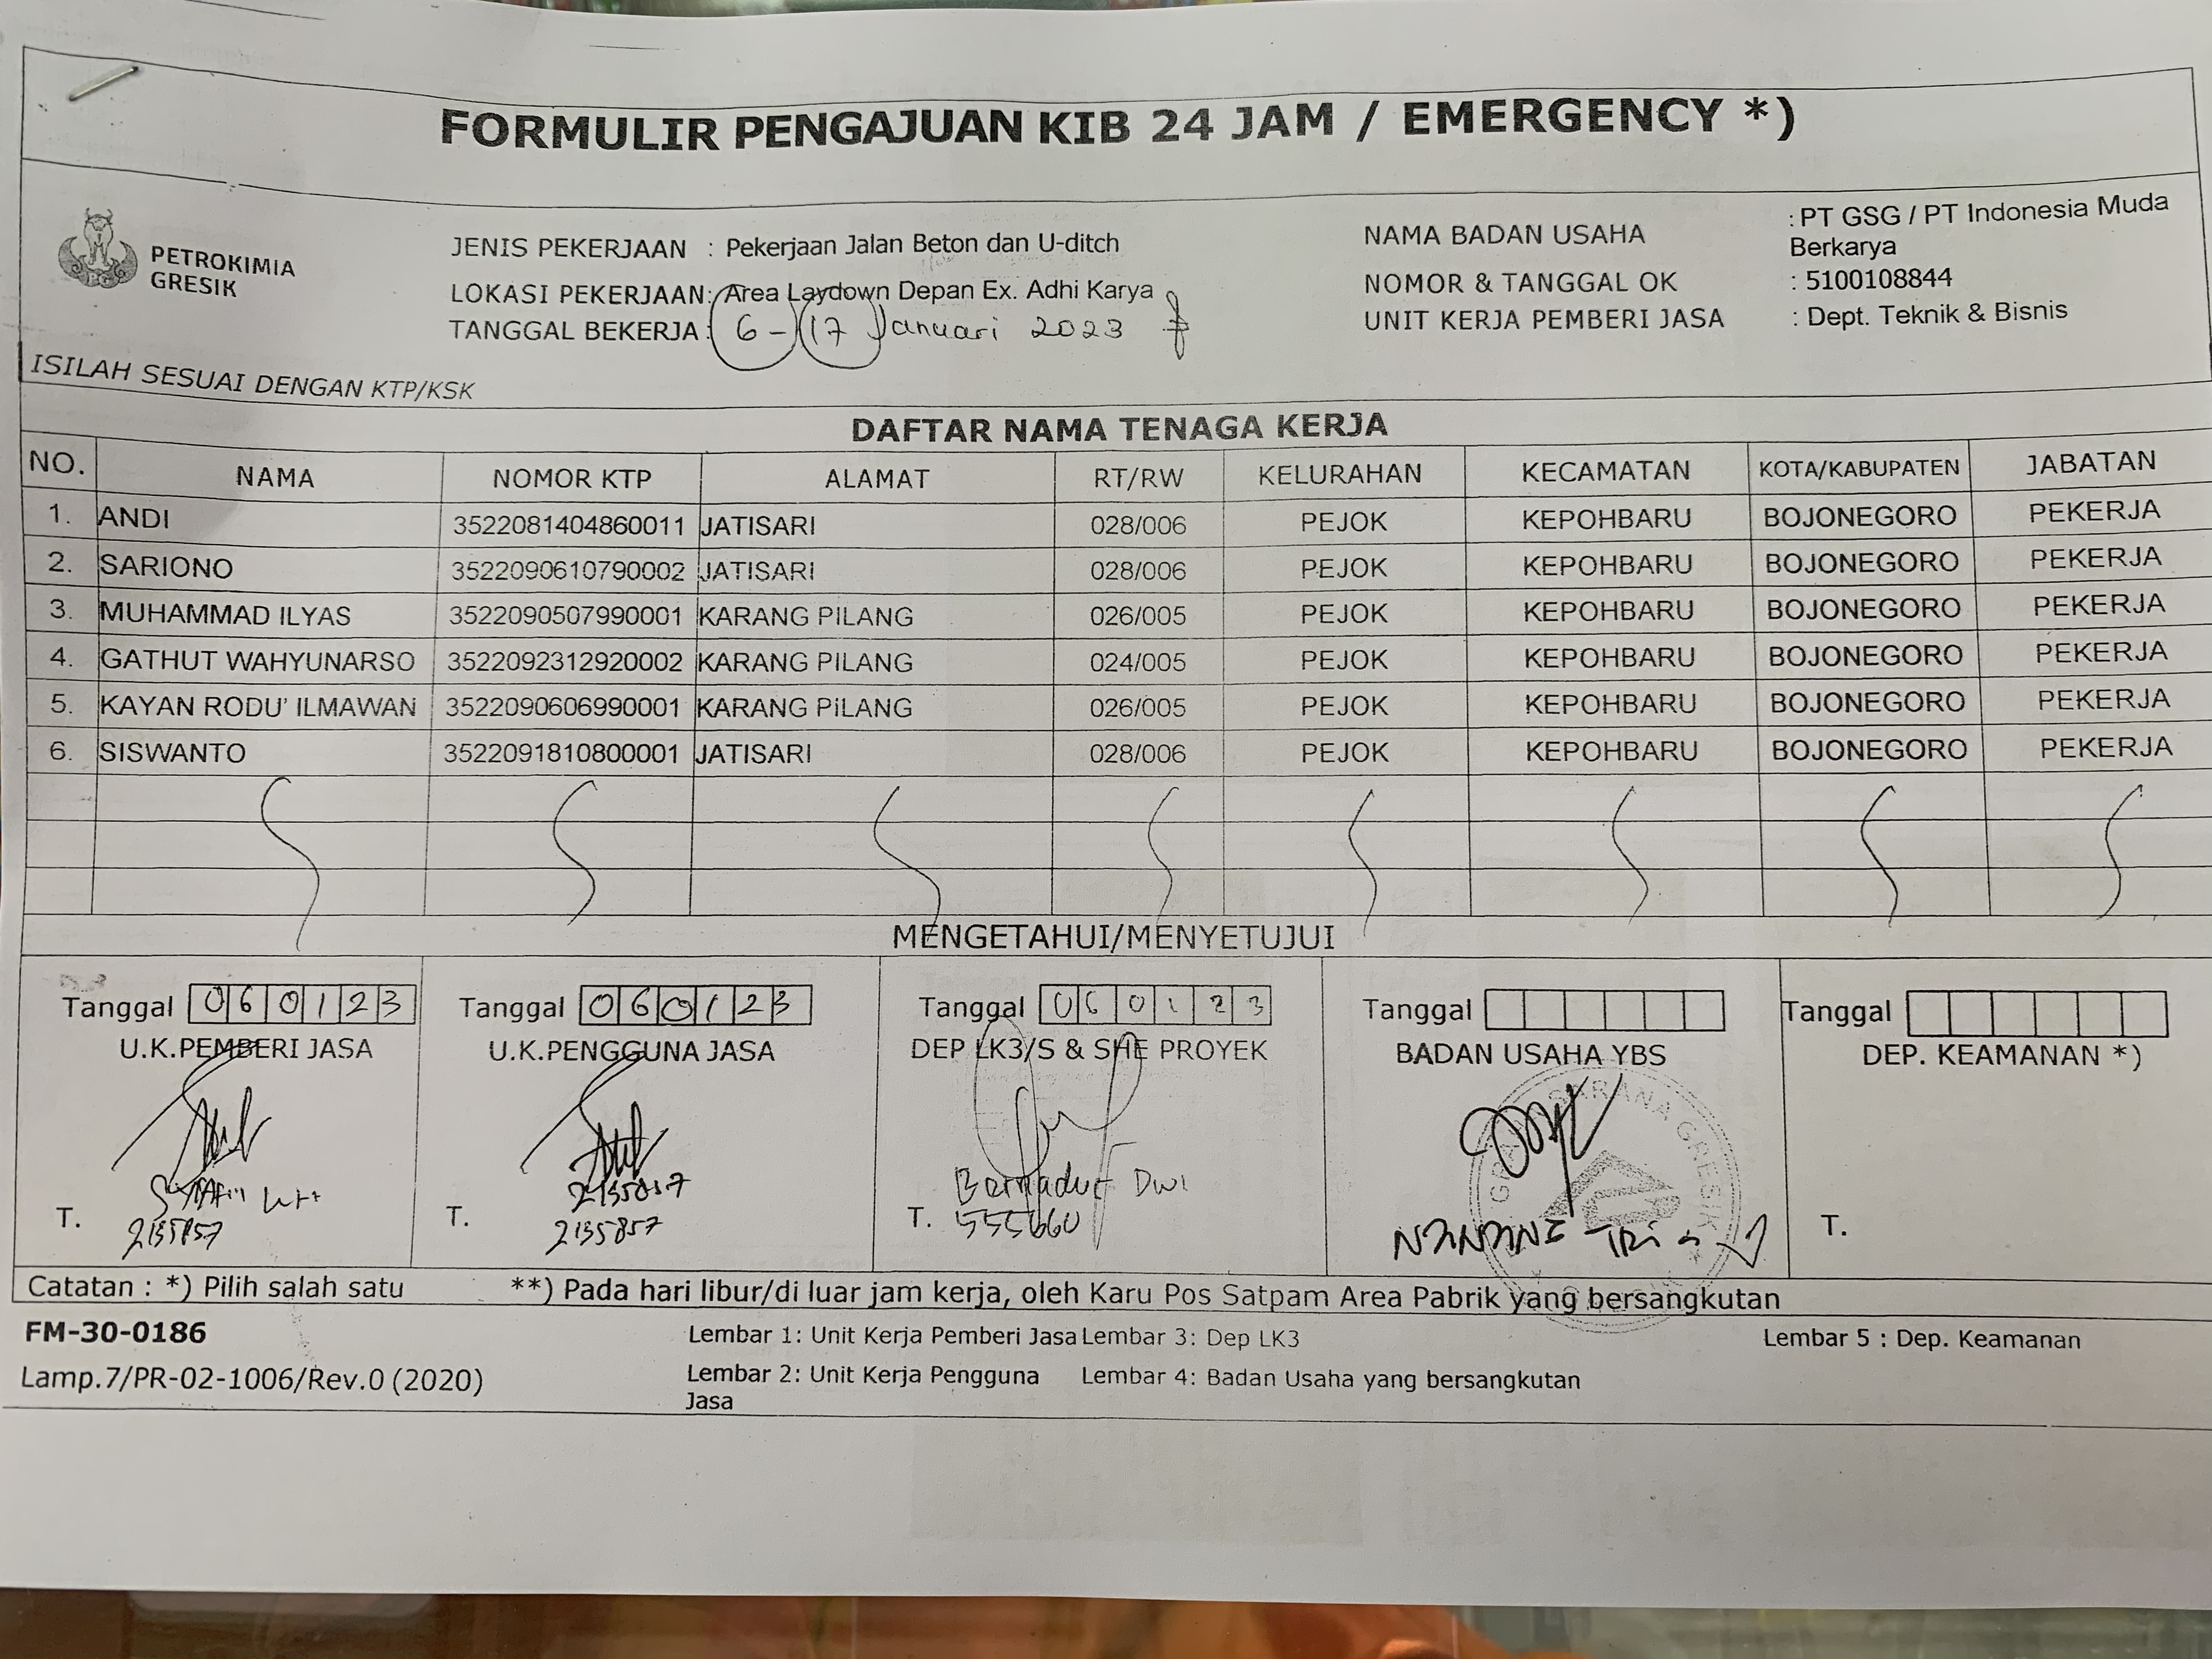 FORMULIR PENGAJUAN KIB 24 JAM / EMERGENCY *)
PETROKIMIA
GRESIK
JENIS PEKERJAAN : Pekerjaan Jalan Beton dan U-ditch
LOKASI PEKERJAAN: Area Laydown Depan Ex. Adhi Karya
TANGGAL BEKERJA : 6 - 17 Januari 2023
NAMA BADAN USAHA : PT GSG / PT Indonesia Muda
Berkarya
NOMOR & TANGGAL OK : 5100108844
UNIT KERJA PEMBERI JASA : Dept. Teknik & Bisnis
ISILAH SESUAI DENGAN KTP/KSK
DAFTAR NAMA TENAGA KERJA
NO. NAMA NOMOR KTP ALAMAT RT/RW KELURAHAN KECAMATAN KOTA/KABUPATEN JABATAN
1. ANDI 3522081404860011 JATISARI 028/006 PEJOK KEPOHBARU BOJONEGORO PEKERJA
2. SARIONO 3522090610790002 JATISARI 028/006 PEJOK KEPOHBARU BOJONEGORO PEKERJA
3. MUHAMMAD ILYAS 3522090507990001 KARANG PILANG 026/005 PEJOK KEPOHBARU BOJONEGORO PEKERJA
4. GATHUT WAHYUNARSO 3522092312920002 KARANG PILANG 024/005 PEJOK KEPOHBARU BOJONEGORO PEKERJA
5. KAYAN RODU' ILMAWAN 3522090606990001 KARANG PILANG 026/005 PEJOK KEPOHBARU BOJONEGORO PEKERJA
6. SISWANTO 3522091810800001 JATISARI 028/006 PEJOK KEPOHBARU BOJONEGORO PEKERJA
MENGETAHUI/MENYETUJUI
Tanggal 060123
U.K.PEMBERI JASA
T. 2135857
Tanggal 060123
U.K.PENGGUNA JASA
T. 2135857
Tanggal 060123
DEP LK3/S & SHE PROYEK
T. Dwi
Tanggal
BADAN USAHA YBS
GRESIK
Tanggal
DEP. KEAMANAN *)
T.
Catatan : *) Pilih salah satu **) Pada hari libur/di luar jam kerja, oleh Karu Pos Satpam Area Pabrik yang bersangkutan
FM-30-0186
Lamp.7/PR-02-1006/Rev.0 (2020)
Lembar 1: Unit Kerja Pemberi Jasa Lembar 3: Dep LK3 Lembar 5 : Dep. Keamanan
Lembar 2: Unit Kerja Pengguna Lembar 4: Badan Usaha yang bersangkutan
Jasa